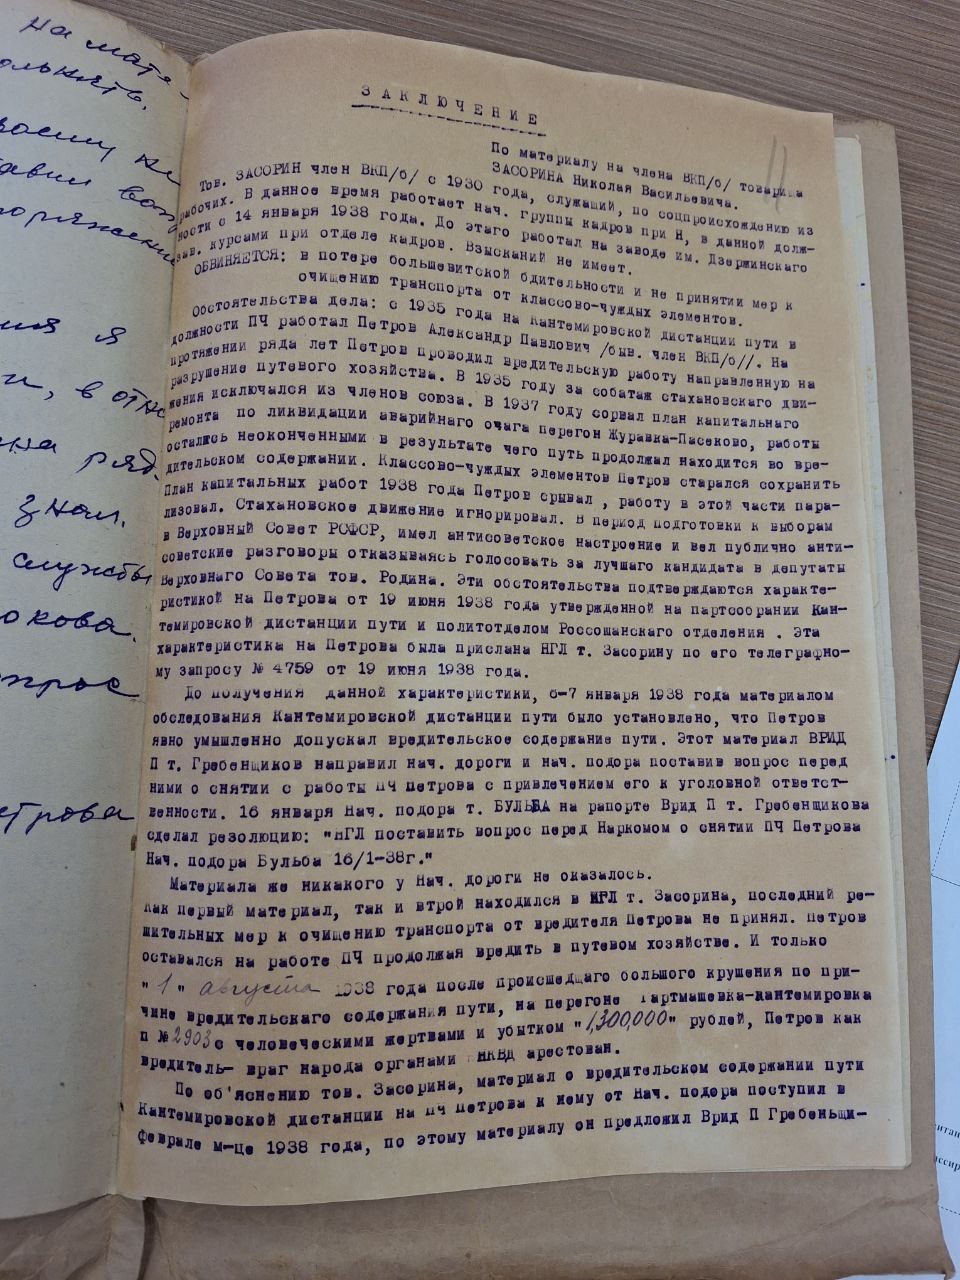 на мате-
11
ЗАКЛЮЧЕНИЕ
По материалу на члена ВКП/б/ товарища
ЗАСОРИНА Николая Васильевича.
Тов. ЗАСОРИН член ВКП/б/ с 1930 года, служащий, по соцпроисхождению из
рабочих. В данное время работает Нач. группы кадров при Н, в данной долж-
ности с 14 января 1938 года. До этаго работал на заводе им. Дзержинскаго
зав. курсами при отделе кадров. Взысканий не имеет.
ОБВИНЯЕТСЯ: в потере большевитской бдительности и не принятии мер к
очищению транспорта от классово-чуждых элементов.
Обстоятельства дела: с 1935 года на Кантемировской дистанции пути в
должности ПЧ работал Петров Александр Павлович /быв. член ВКП/б//. На
протяжении ряда лет Петров проводил вредительскую работу направленную на
разрушение путевого хозяйства. В 1935 году за собатаж стахановскаго дви-
жения исключался из членов союза. В 1937 году сорвал план капитальнаго
ремонта по ликвидации аварийнаго очага перегон Журавка-Пасеково, работы
остались неоконченными в результате чего путь продолжал находится во вре-
дительском содержании. Классово-чуждых элементов Петров старался сохранить
План капитальных работ 1938 года Петров срывал , работу в этой части пара-
лизовал. Стахановское движение игнорировал. В период подготовки к выборам
в Верховный Совет РСФСР, имел антисоветское настроение и вел публично анти-
советские разговоры отказываясь голосовать за лучшаго кандидата в депутаты
Верховнаго Совета тов. Родина. Эти обстоятельства подтверждаются характе-
ристикой на Петрова от 19 июня 1938 года утвержденной на партсобрании Кан-
темировской дистанции пути и политотделом Россошанскаго отделения . Эта
характеристика на Петрова была прислана НГЛ т. Засорину по его телеграфно-
му запросу № 4759 от 19 июня 1938 года.
До получения данной характеристики, 6-7 января 1938 года материалом
обследования Кантемировской дистанции пути было установлено, что Петров
явно умышленно допускал вредительское содержание пути. Этот материал ВРИД
П т. Гребенщиков направил нач. дороги и нач. подора поставив вопрос перед
ними о снятии с работы ПЧ Петрова с привлечением его к уголовной ответст-
венности. 16 января Нач. подора т. БУЛЬБА на рапорте Врид П т. Гребенщикова
сделал резолюцию: "НГЛ поставить вопрос перед Наркомом о снятии ПЧ Петрова
Нач. подора Бульба 16/1-38г."
Материала же никакого у Нач. дороги не оказалось.
Как первый материал, так и втрой находился в НГЛ т. Засорина, последний ре-
шительных мер к очищению транспорта от вредителя Петрова не принял. Петров
оставался на работе ПЧ продолжая вредить в путевом хозяйстве. И только
"1" августа 1938 года после происшедшаго большого крушения по при-
чине вредительскаго содержания пути, на перегоне Гартмашевка-Кантемировка
п № 2903 с человеческими жертвами и убытком "1,300,000" рублей, Петров как
вредитель- враг народа органами НКВД арестован.
По об'яснению тов. Засорина, материал о вредительском содержании пути
Кантемировской дистанции на ПЧ Петрова к нему от Нач. подора поступил в
феврале м-це 1938 года, по этому материалу он предложил Врид П Гребеньщи-
я
и, в отно
на ряд.
знал.
службы
петрова